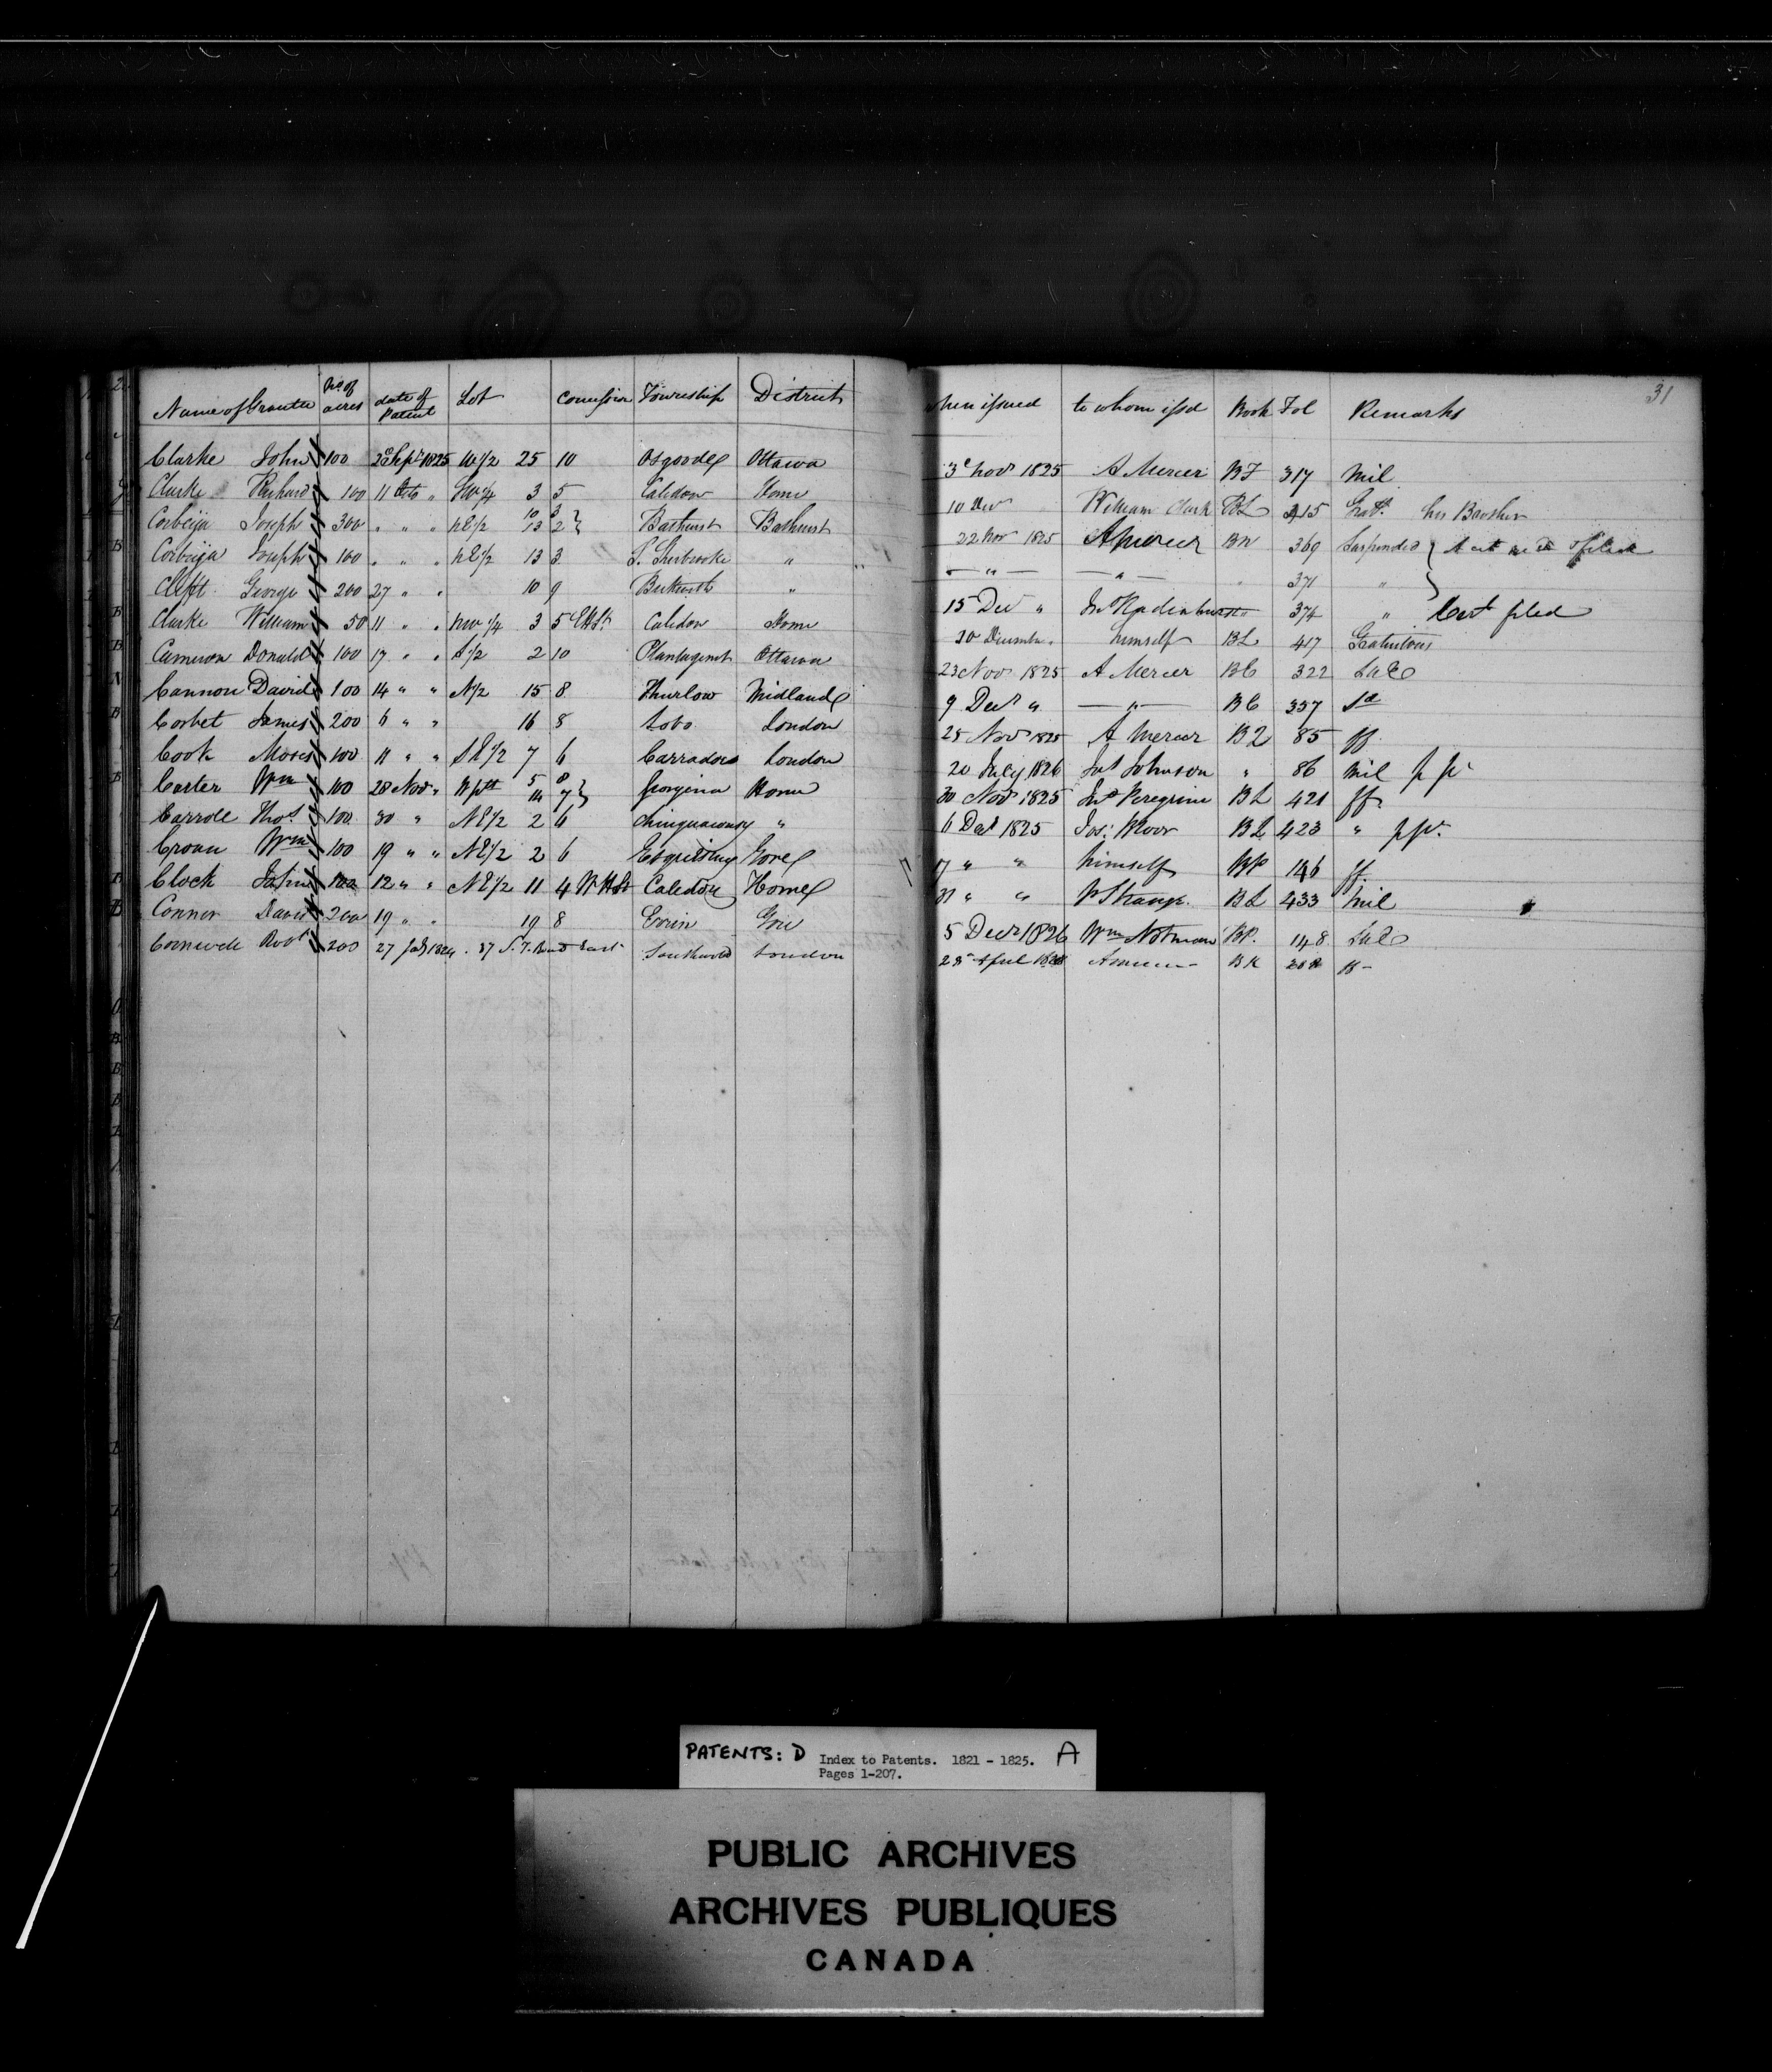 31
Name of Grantee No. of acres date of Patent Lot Concession Township District when issued to whom issd Book Fol Remarks
Clarke John 100 2 Sept. 1825 W 1/2 25 10 Osgoode Ottawa 3 Nov 1825 A Mercer BF 317 Mil
Clarke Richard 100 11 Octo " SW 1/4 3 5 Caledon Home 10 Dec William Clark BL 215 his Brother
Corbeija Joseph 300 " " " NE 1/2 10 3 13 2 } Bathurst Bathurst 22 Nov 1825 A Mercer BN 369 Suspended
Corbeija Joseph 100 " " " NE 1/2 13 3 S. Sherbrooke " — " — — " — " 371 "
Clifft George 200 27 " " 10 9 Beckwith " 15 Dec " 374 " Cert filed
Clarke William 50 11 " " NW 1/4 3 5 EHSt Caledon Home 30 December " himself BL 417 Gratuitous
Cameron Donald 100 17 " " S 1/2 2 10 Plantagenet Ottawa 23 Nov 1825 A Mercer BC 322
Cannon David 100 14 " " N 1/2 15 8 Thurlow Midland 9 Decr " — " — BC 357
Corbet James 200 6 " " 16 8 Lobo London 25 Nov 1825 A Mercer BL 85 ff
Cook Moses 100 11 " " SE 1/2 7 6 Carradoc London 20 July 1826 Jno Johnson " 86 Mil
Carter Wm 100 28 Nov " W pt 5 8 14 7 } Georgina Home 30 Nov 1825 Jno Peregrine BL 421 ff
Carrole Thos. 100 30 " NE 1/2 2 6 Chinguacousy " 6 Decr 1825 Jos: Moor BL 423 "
Croan Wm 100 19 " " NE 1/2 2 6 Esquesing Gore 17 " " himself BP 146 ff
Clock John 100 12 " " NE 1/2 11 4 WHSt Caledon Home 31 " " Strange BL 433 Mil
Conner David 200 19 " " 19 8 Erin Gore 5 Decr 1826 Wm Notman BP. 148
Cornwell Robt 200 27 1824 37 Southwold London 28 April BK
PATENTS: D Index to Patents. 1821 - 1825. A
Pages 1-207.
PUBLIC ARCHIVES
ARCHIVES PUBLIQUES
CANADA